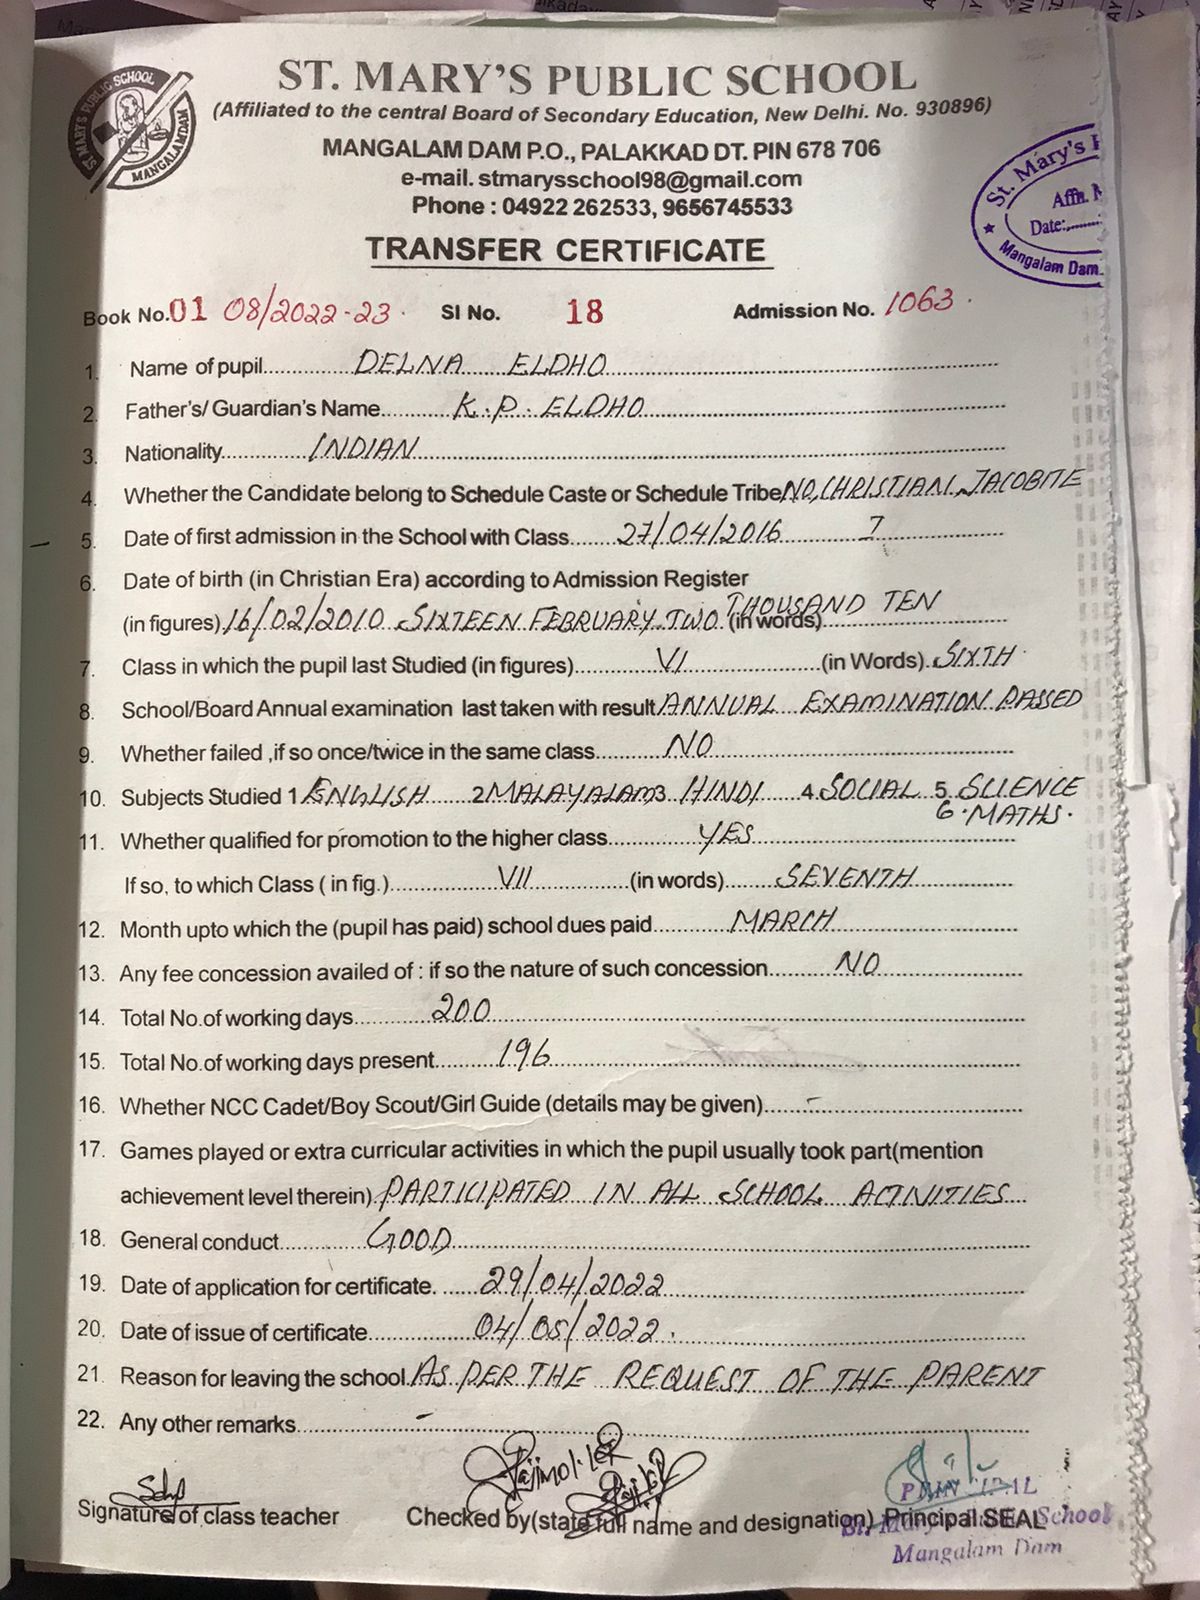 ST. MARY'S PUBLIC SCHOOL
MANGALAMDAM
ST. MARY'S PUBLIC SCHOOL
(Affiliated to the central Board of Secondary Education, New Delhi. No. 930896)
MANGALAM DAM P.O., PALAKKAD DT. PIN 678 706
e-mail. stmarysschool98@gmail.com
Phone : 04922 262533, 9656745533
St. Mary's
Affn.
Date:.......
Mangalam Dam
TRANSFER CERTIFICATE
Book No.01 08/2022-23. SI No. 18 Admission No. 1063.
1. Name of pupil DELNA ELDHO
2. Father's/ Guardian's Name K.P. ELDHO
3. Nationality INDIAN
4. Whether the Candidate belong to Schedule Caste or Schedule Tribe NO, CHRISTIAN, JACOBITE
5. Date of first admission in the School with Class 27/04/2016 I
6. Date of birth (in Christian Era) according to Admission Register
(in figures) 16/02/2010 SIXTEEN FEBRUARY TWO (in words) THOUSAND TEN
7. Class in which the pupil last Studied (in figures) VI (in Words). SIXTH.
8. School/Board Annual examination last taken with result ANNUAL EXAMINATION PASSED
9. Whether failed ,if so once/twice in the same class NO
10. Subjects Studied 1 ENGLISH 2 MALAYALAM 3. HINDI 4. SOCIAL 5. SCIENCE
6. MATHS.
11. Whether qualified for promotion to the higher class YES
If so, to which Class ( in fig.) VII (in words) SEVENTH
12. Month upto which the (pupil has paid) school dues paid MARCH
13. Any fee concession availed of : if so the nature of such concession NO
14. Total No.of working days 200
15. Total No.of working days present 196
16. Whether NCC Cadet/Boy Scout/Girl Guide (details may be given) -
17. Games played or extra curricular activities in which the pupil usually took part(mention
achievement level therein) PARTICIPATED IN ALL SCHOOL ACTIVITIES
18. General conduct GOOD
19. Date of application for certificate. 29/04/2022
20. Date of issue of certificate 04/05/2022.
21. Reason for leaving the school AS PER THE REQUEST OF THE PARENT
22. Any other remarks -
Signature of class teacher Checked by(state full name and designation) Principal SEAL
PRINCIPAL
St. Mary's Public School
Mangalam Dam